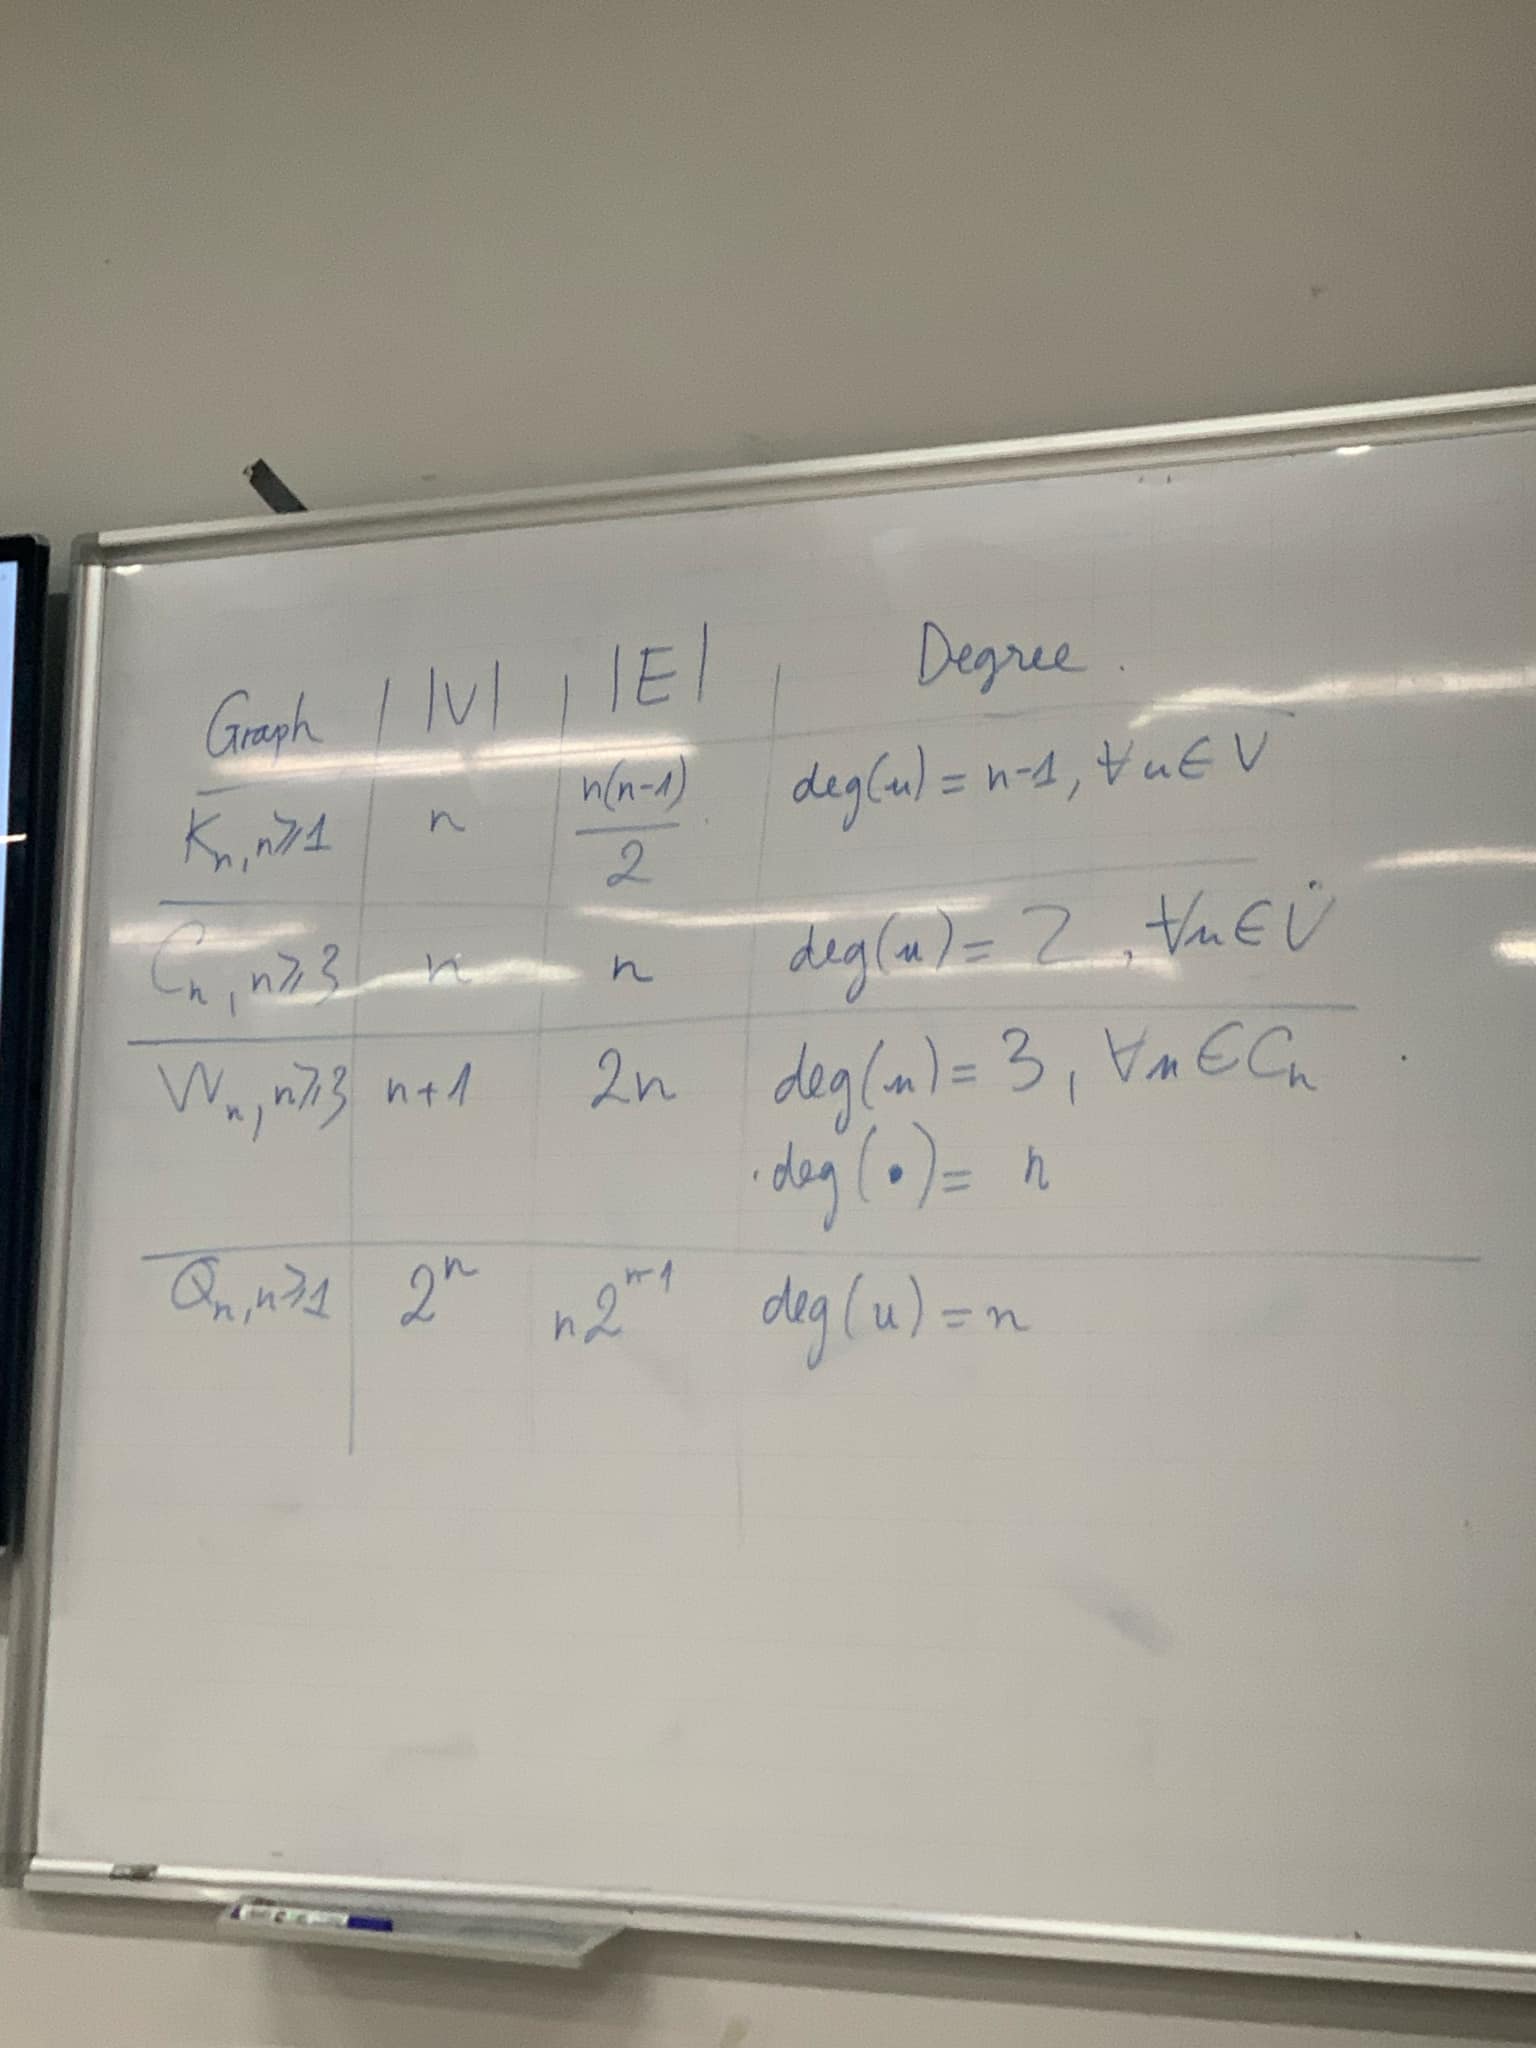 Graph | |V| | |E| | Degree.
Kₙ, n≥1 | n | n(n-1)/2 | deg(u) = n-1, ∀u∈V
Cₙ, n≥3 | n | n | deg(u) = 2, ∀u∈V
Wₙ, n≥3 | n+1 | 2n | deg(u) = 3, ∀u∈Cₙ
deg(•) = n
Qₙ, n≥1 | 2ⁿ | n2ⁿ⁻¹ | deg(u) = n